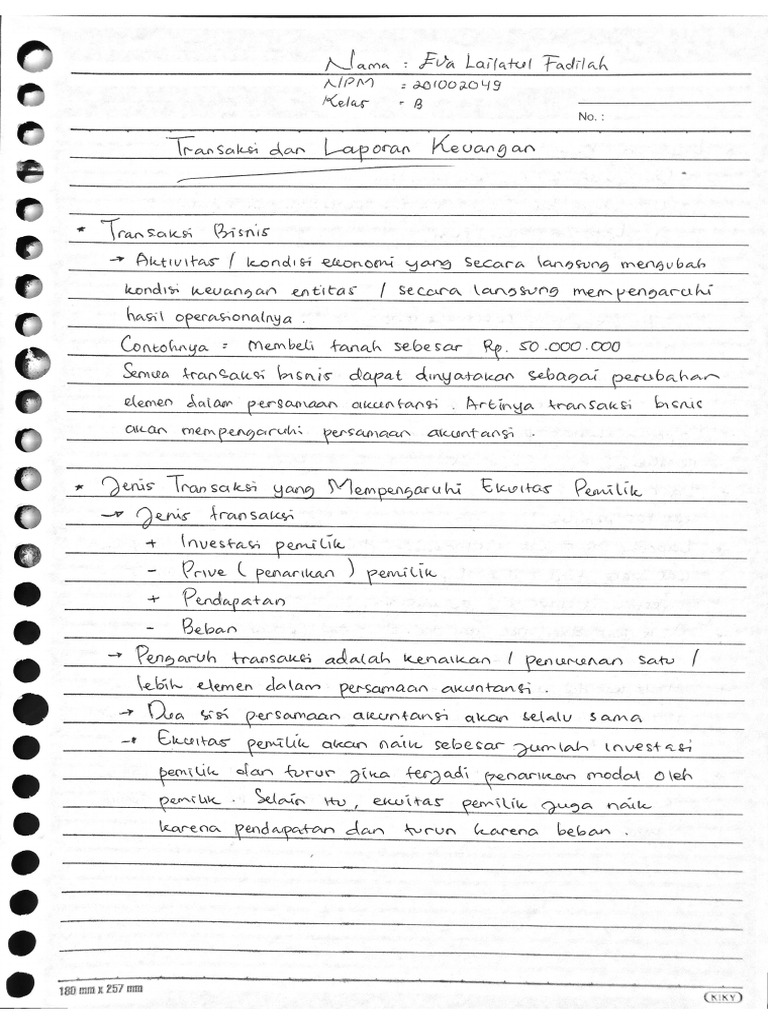 Nama : Eva Lailatul Fadilah
NPM : 201002049
Kelas : B
No. :
Transaksi dan Laporan Keuangan
* Transaksi Bisnis
→ Aktivitas / kondisi ekonomi yang secara langsung mengubah
kondisi keuangan entitas / secara langsung mempengaruhi
hasil operasionalnya.
Contohnya = Membeli tanah sebesar Rp. 50.000.000
Semua transaksi bisnis dapat dinyatakan sebagai perubahan
elemen dalam persamaan akuntansi. Artinya transaksi bisnis
akan mempengaruhi persamaan akuntansi.
* Jenis Transaksi yang Mempengaruhi Ekuitas Pemilik
→ Jenis transaksi
+ Investasi pemilik
- Prive (penarikan) pemilik
+ Pendapatan
- Beban
→ Pengaruh transaksi adalah kenaikan / penurunan satu /
lebih elemen dalam persamaan akuntansi.
→ Dua sisi persamaan akuntansi akan selalu sama
→ Ekuitas pemilik akan naik sebesar jumlah investasi
pemilik dan turun jika terjadi penarikan modal oleh
pemilik. Selain itu, ekuitas pemilik juga naik
karena pendapatan dan turun karena beban.
180 mm x 257 mm
KIKY